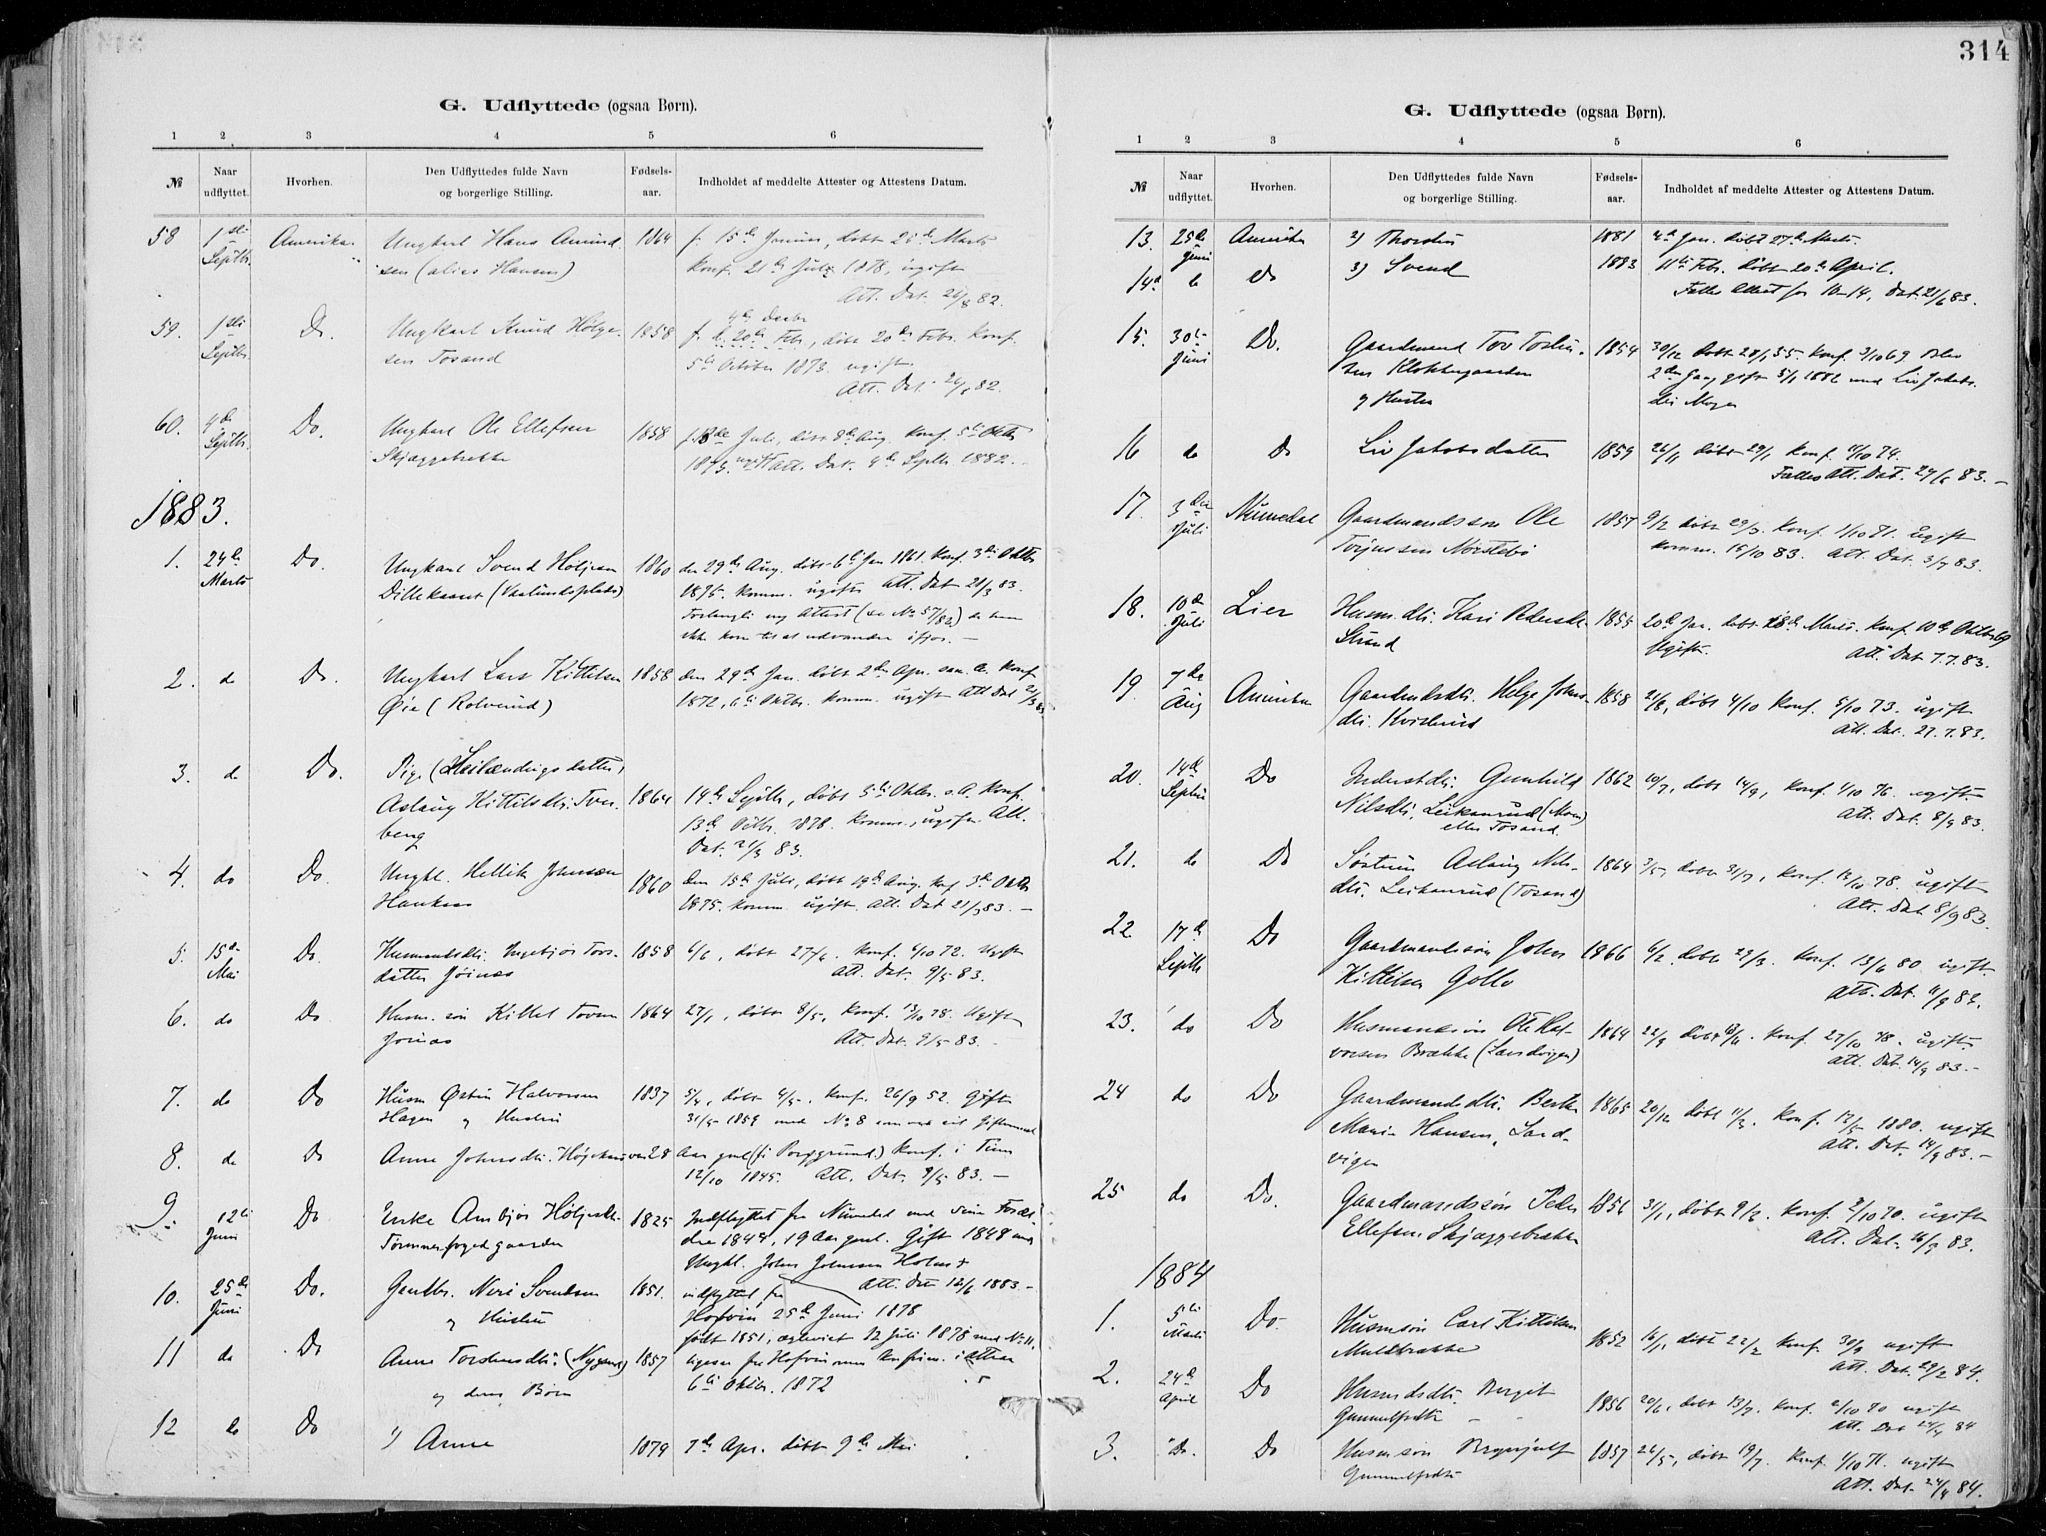 314
G. Udflyttede (ogsaa Børn).
1 2 3 4 5 6
№ Naar udflyttet. Hvorhen. Den Udflyttedes fulde Navn og borgerlige Stilling. Fødsels-aar. Indholdet af meddelte Attester og Attestens Datum.
58 1ste Septbr. Amerika Ungkarl Hans Amund- 1864 f. 15de Januar, døbt Marts
sen (alias Hansen) Konf. 21de Juli 1878, ugift
Att. Dat. 26/8 82.
59. 1ste Septbr. Do. Ungkarl Knud Helge- 1858 f. d. 20de Febr., Konf.
sen Tosand 5te Oktober 1873. ugift
Att. Dat. 26/8 82.
60. 4de Septbr. Do. Ungkarl Ole Ellefsen 1858 Juli, døbt 8de Aug. Konf. 5te Oktbr
Skjæggebrekke 1873. ugift Att. Dat. 4de Septbr. 1882.
1883.
1. 24de Marts Do. Ungkarl Svend Holjesen 1860 den 29de Aug. døbt 6te Jan 1861. Konf. 3die Oktbr
1875. komm. ugift Att. Dat 21/3 83.
(se No 57/82)
2. do Do. Ungkarl Lars Kittilsen 1858 den 29de Jan. døbt 2den Apr. Konf.
Øie (Rolverud) 1872, 6te Oktbr. komm. ugift Att Dat 21/3 83
3. do Do. Pige
Aslaug Kittilsdtr. Tver- 1864 14de Septbr, døbt 5te Oktbr. s. A. Konf.
berg 13de Oktbr. 1878. komm., ugift Att.
Dat. 21/3 83.
4. do Do. Ungkl. Hellik Johnsen 1860 den 15de Juli, døbt 19de Aug. Konf 3die Oktbr
Haukaas 1875. komm. ugift. Att. Dat 21/3 83. –
5. 15de Mai Do. Husmandsdtr. Ingebjør Tovs- 1858 6/6, døbt 27/6. Konf. 6/10 72. Ugift
datter Jønaas Att. Dat. 9/5 83.
6. do Do Husm. søn Kittel Toven 1864 27/1, døbt 8/5. Konf. 13/10 78. Ugift
Jønaas Att. Dat. 9/5 83.
7. do Do Husm Østen Halvorsen 1837 5/4, døbt 4/5. Konf. 26/9 52. Gift
Hagen og Hustru 31/5 1859 med No 8
8. do Do Anne Johnsdtr. 28 Aar gml (fr Porsgrund) Konf. i Tinn
12/10 1845. Att. Dat. 9/5 83. –
9. 12te Juni Do Enke Ambjør Holjesdtr. 1825 Indflyttet fra Numedal med sine Foræl-
Tømmerfogedgaarden dre 1844, 19 Aar gml. Gift 1848 med
Ungkl. John Johnsen Holm
Att. Dat 12/6 1883. –
10. 25de Juni Do. Gaardbr. Neri Svendsen 1851. indflyttet fra
og Hustru Hovin 25de Juni 1878
født 1851, ægteviet 12 Juli 1878 med No 11.
11 do Do Anne Torstensdtr. (Nygaard) 1857 ligesaa fra Hofvin
og deres Børn 6te Oktbr. 1872
12 do Do 1) Anne 1879 7de Apr. døbt 9de Mai
G. Udflyttede (ogsaa Børn).
1 2 3 4 5 6
№ Naar udflyttet. Hvorhen. Den Udflyttedes fulde Navn og borgerlige Stilling. Fødsels-aar. Indholdet af meddelte Attester og Attestens Datum.
13. 25de Juni Amerika 2) Thorsten 1881 4de Jan. døbt 27de Marts.
14. do Do 3) Svend 1883 11te Febr. døbt 20de April.
Fælles Attest for 10–14, Dat. 21/6 83.
15. 30te Juni Do. Gaardmand Tov Torsten- 1854 30/12 døbt 28/1 55. Konf. 3/10 69 Blev
sen Klokkergaarden 2den Gang gift 5/1 1882 med Liv Jakobs-
og Hustru dtr. Mogen
16 do Do Liv Jakobsdatter 1859 26/1, døbt 29/1 Konf. 11/10 74.
Fælles Att. Dat. 29/6 83. –
17. 3die Juli Numedal Gaardmandssøn Ole 1857 9/2 døbt 29/3. Konf. 1/10 71. Ugift
Torjussen Nørstebø Komm. Att. Dat. 3/7 83.
18. 10de Juli Lier Husm.dtr. Kari Pedersdtr. 1855 20de Jan. døbt 18de Marts. Konf. 10de Oktbr 69
Strand Ugift. Att. Dat 7.7.83.
19. 7de Aug Amerika Gaardmdsdtr. Helge Johns- 1858 21/8, døbt 4/10 Konf. 5/10 73. ugift
dtr. Kvislerud Att. Dat. 27.7.83.
20. 14de Septbr Do Inderstdtr. Gunhild 1862 10/7, døbt 14/9, Konf. 1/10 76. ugift.
Nilsdtr. Leikanrud (Moen) Att. Dat. 8/9 83.
eller Tosand.
21. do Do Søstren Aslaug Nils- 1864 3/5, døbt 31/7, Konf. 13/10 78. ugift
dtr. Leikanrud (Tosand) Att. Dat 8/9 83.
22. 17de Septbr Do Gaardmandssøn John 1866 6/2. døbt 29/3. Konf. 13/6 80 ugift.
Kittilsen Gollo Att. Dat. 11/9 83.
23. do Do Husmandssøn Ole Hal- 1864 22/9 døbt Konf. 27/10 78. ugift.
vorsen Brække (Sandvigen) Att. Dat. 14/9 83. –
24 do Do Gaardmandsdtr. Berthe 1865 20/12 døbt 11/3. Konf. 13/5 1880. ugift
Marie Hansen, Sand- Att. Dat. 14/9 83. –
vigen
25 do Do. Gaardmandssøn Peder 1856 3/1, døbt 9/3. Konf. 2/10 70. ugift
Ellefsen Skjæggebrække Att. Dat. 16/9 83.
1884
1. 5te Marts Do. Husmsøn Carl Kittilsen 1852 16/1, døbt 22/2 Konf. 30/9 ugift
Muldbrække Att. Dat. 29/2 84.
2. 24de April Do Husmdsdtr. Bergit 1856 20/6, døbt 13/7. Konf. 2/10 70 ugift
Gunnulfsdtr. Att. Dat 24/4 84
3. Do. Do Husmsøn Brynjulf 1857 26/5, døbt 19/7. Konf. 1/10 71. ugift
Att. Dat. 24/4 84.